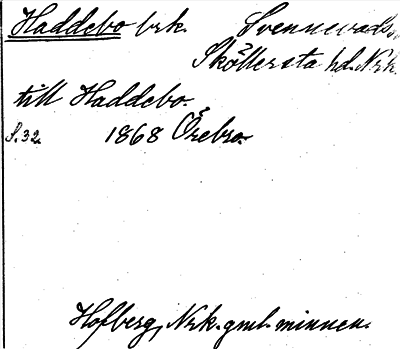 Haddebo brk. Svennevads,
Sköllersta hd. Nrk.
till Haddebo.
S. 32. 1868 Örebro.
Hofberg, Nrk. gml. minnen.